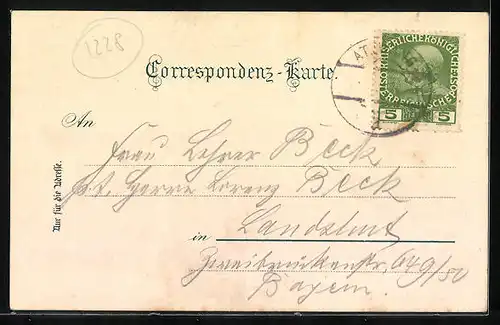 1228
Correspondenz-Karte.
KAISERLICHE KÖNIGLICHE
ÖSTERREICHISCHE POST
5 5
AT
An
Frau Lehrer Beck
p. t. Herrn Lorenz Beck
in Landshut
Zweibrückenstr. 649/50
Bayern.
Nur für die Adresse.